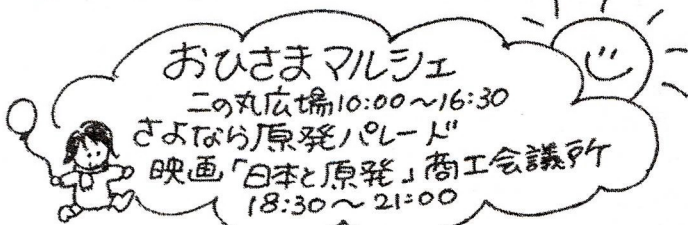 おひさまマルシェ
二の丸広場10:00〜16:30
さよなら原発パレード
映画「日本と原発」商工会議所
18:30〜21:00